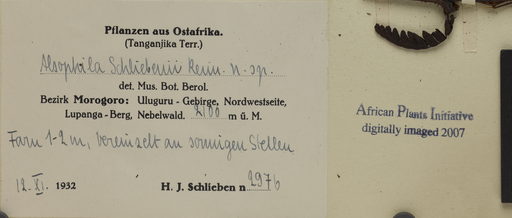 Pflanzen aus Ostafrika.
(Tanganjika Terr.)
Alsophila Schliebenii Reim. n. sp.
det. Mus. Bot. Berol.
Bezirk Morogoro: Uluguru - Gebirge, Nordwestseite,
Lupanga - Berg, Nebelwald. 2100 m ü. M.
Farn 1-2 m, vereinzelt an sonnigen Stellen
12. XI. 1932 H. J. Schlieben n 2976
African Plants Initiative
digitally imaged 2007